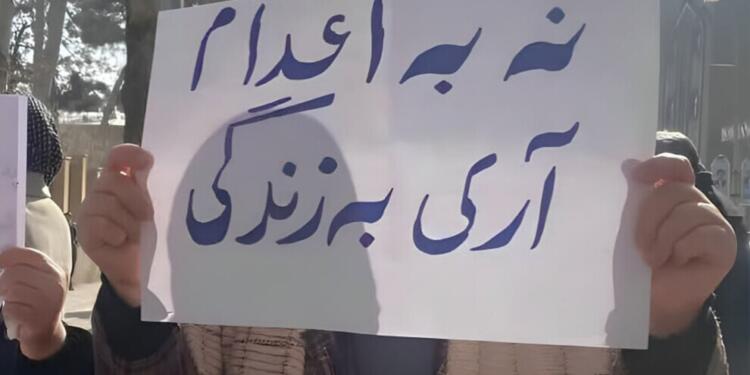 نه به اعدام
آری به زندگی